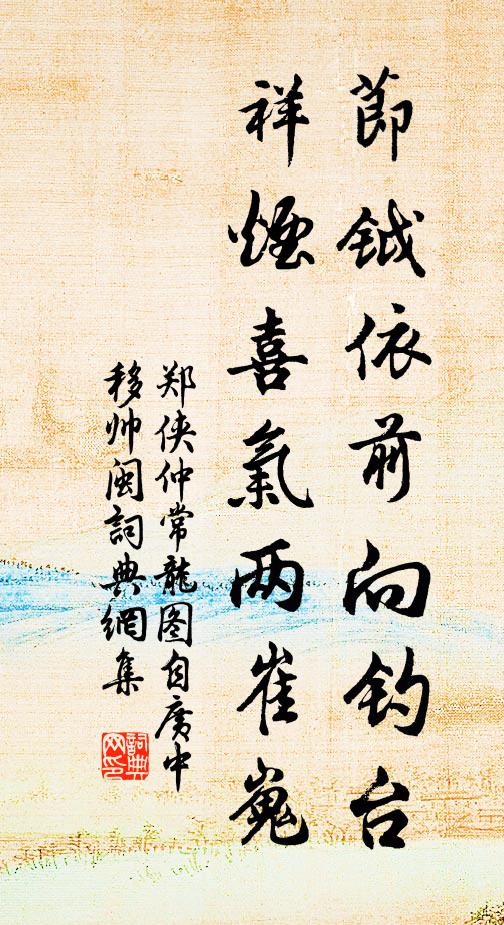 節鉞依前向钓台
祥煙喜氣两崔嵬
郑侠仲常龍图自廣中
移帅闽詞典網集
詞典网印